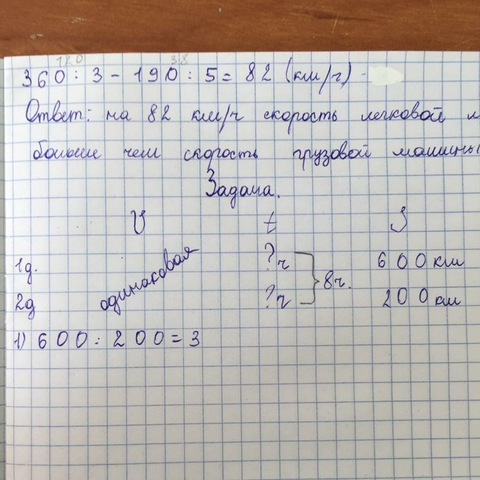 120 38
360 : 3 - 190 : 5 = 82 (км/ч)
Ответ: на 82 км/ч скорость легковой м
больше чем скорость грузовой машины
Задача.
V t S
1д. ? ч 600 км
одинаковая 8ч.
2д ? ч 200 км
1) 600 : 200 = 3